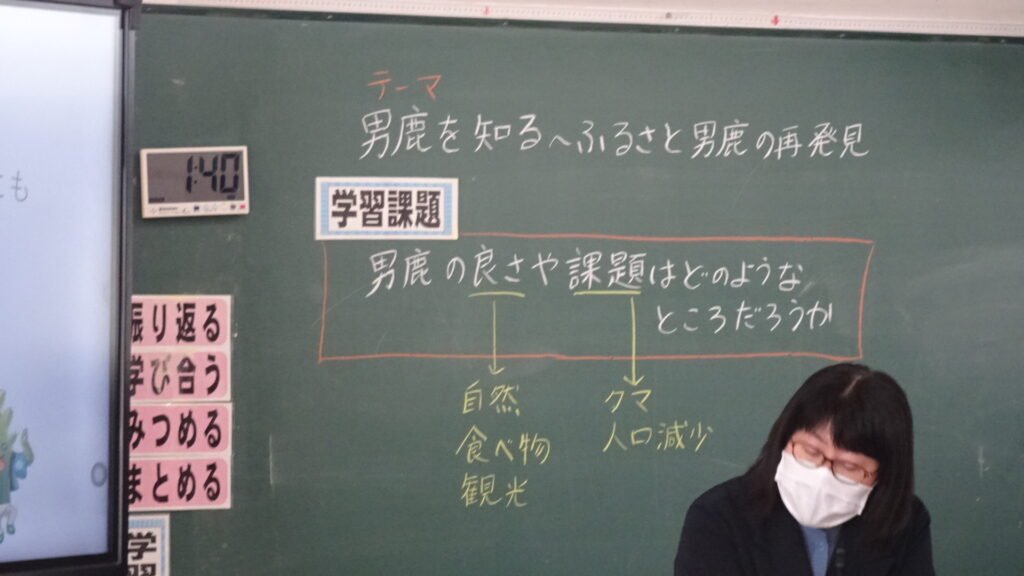 テーマ
男鹿を知る~ふるさと男鹿の再発見
1:40
学習課題
男鹿の良さや課題はどのような
ところだろうか
自然
食べ物
観光
クマ
人口減少
とも
振り返る
学び合う
みつめる
まとめる
学習